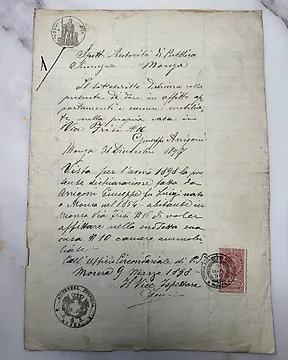 Spett. Autorità di Pubblica
Monza
Il sottoscritto dichiara colla
presente di dare in affitto ap
partamenti e camere mobilia
te nella propria casa in
Via Frisi N 16
Giuseppe Arrigoni
Monza 31 Dicembre 1897
Visto per l'anno 1898 la pre
sente dichiarazione fatta da
Arrigoni Giuseppe fu Luigi nato
a Monza nel 1854 abitante in
Monza Via Frisi N° 16 di voler
affittare nella suddetta sua
casa N° 10 camere ammobi
liate.
Dall'Ufficio Circondariale di P.S.
Monza 9 Marzo 1898
Il Vice Ispettore